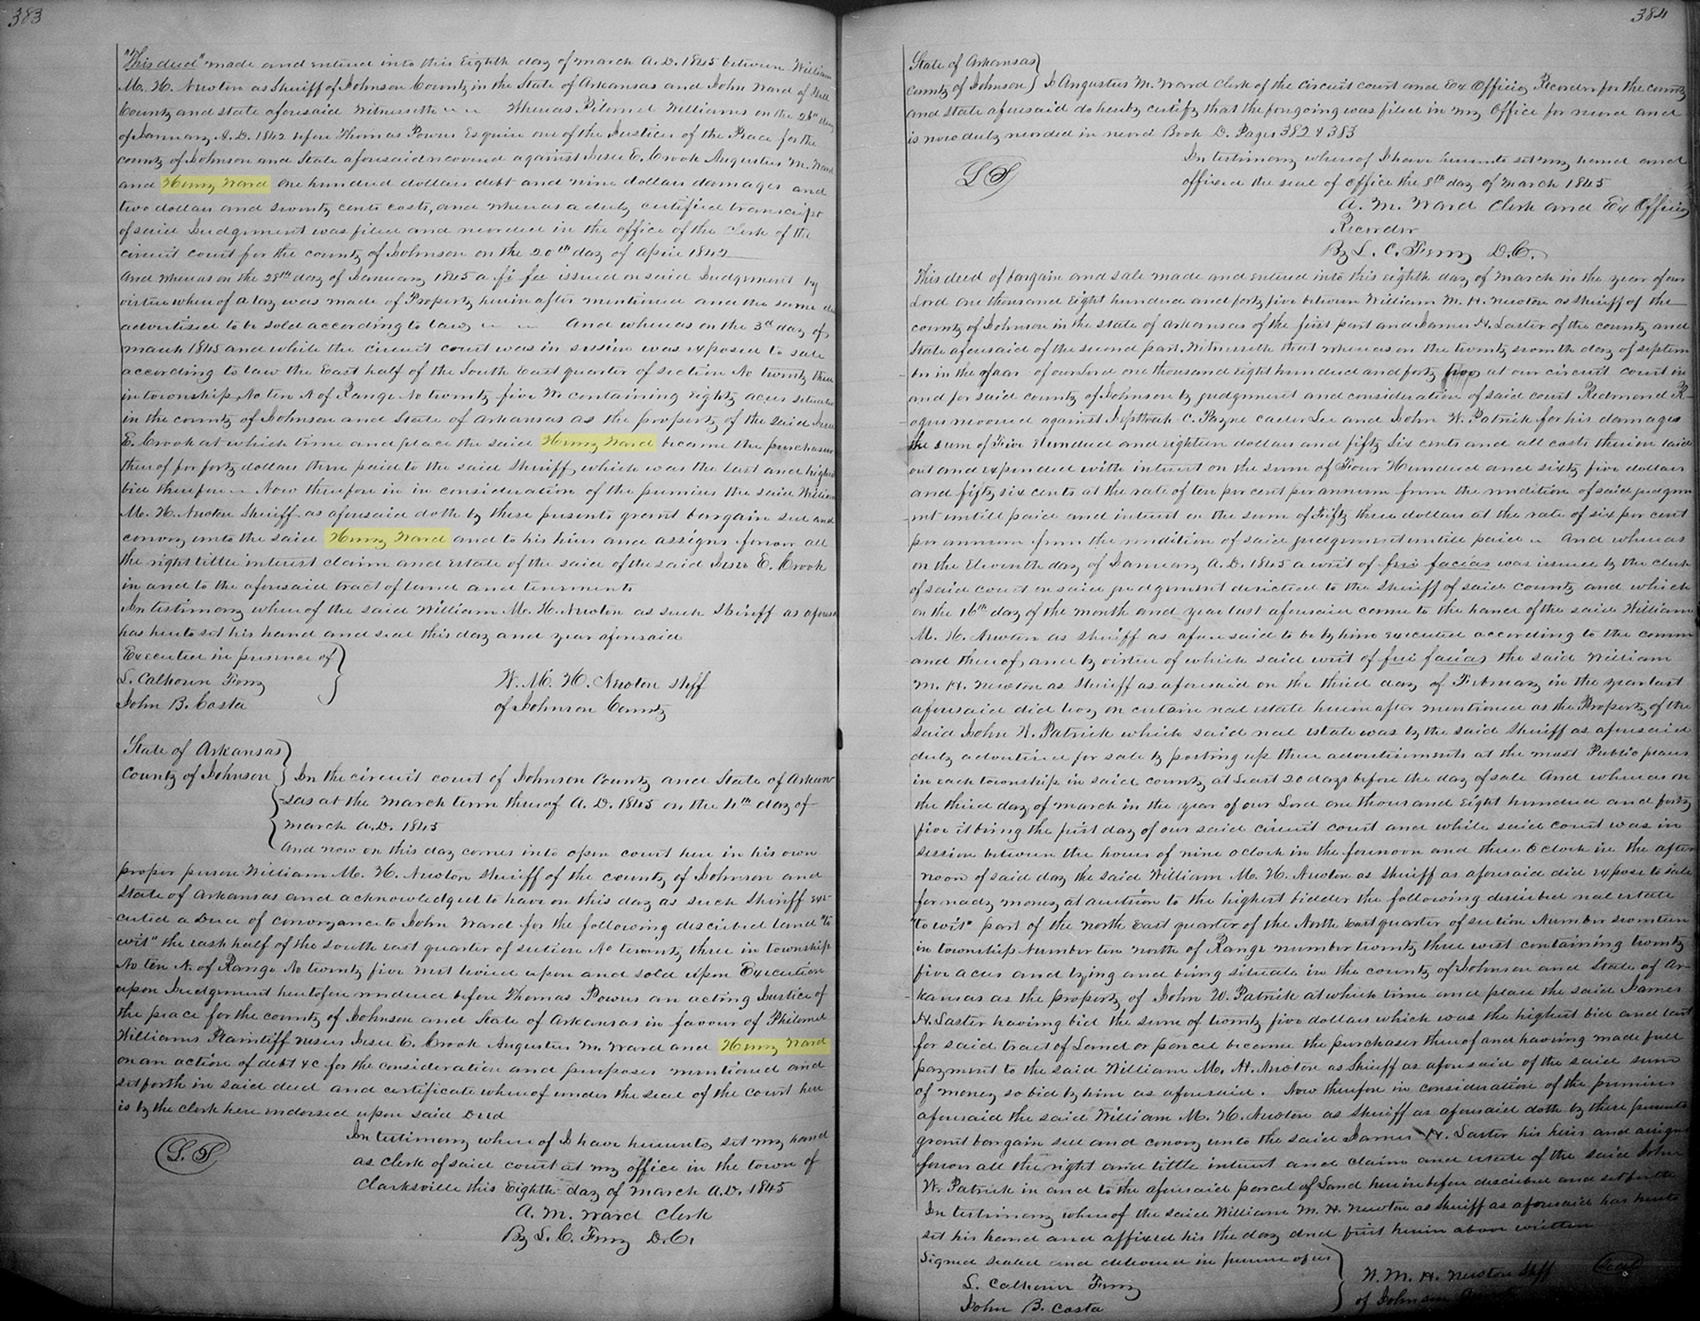 383
"This deed" made and entered into this Eighth day of March A.D. 1845 between William
M. H. Newton as Sheriff of Johnson County in the State of Arkansas and John Ward of the
County and State aforesaid Witnesseth Whereas Pilomel Williams on the 26th day
of January A.D. 1842 before Thomas Powers Esquire one of the Justices of the Peace for the
county of Johnson and State aforesaid recovered against Jesse E. Crook Augustus M. Ward
and Henry Ward one hundred dollars debt and nine dollars damages and
two dollars and seventy cents costs, and whereas a duly certified transcript
of said Judgement was filed and recorded in the office of the Clerk of the
circuit court for the county of Johnson on the 20th day of April 1842
And whereas on the 28th day of January 1845 a fi fa issued on said Judgement by
virtue where of a levy was made of Property herein after mentioned and the same
advertised to be sold according to law And whereas on the 3rd day of
march 1845 and while the circuit court was in session was exposed to sale
according to law the East half of the South East quarter of section No twenty three
in township No ten N of Range No twenty five W containing eighty acres situate
in the county of Johnson and State of Arkansas as the property of the said Jesse
E. Crook at which time and place the said Henry Ward became the purchaser
thereof for forty dollars there paid to the said Sheriff, which was the last and highest
bid therefore Now therefore in in consideration of the premises the said William
M. H. Newton Sheriff as aforesaid doth by these presents grant bargain sell and
convey unto the said Henry Ward and to his heirs and assigns forever all
the right tittle interest claim and estate of the said of the said Jesse E. Crook
in and to the aforesaid tract of land and tenements
In testimony where of the said William M. H. Newton as such Sheriff as afores
has hereto set his hand and seal this day and year aforesaid
Executed in presence of
L. Calhoun Ferry
John B. Costa
W. M. H. Newton Shff
of Johnson County
State of Arkansas
County of Johnson In the circuit court of Johnson County and State of Arkan
sas at the March term thereof A.D. 1845 on the 4th day of
March A.D. 1845
And now on this day comes into open court here in his own
proper person William M. H. Newton Sheriff of the county of Johnson and
State of Arkansas and acknowledged to have on this day as such Sheriff exe-
cuted a Deed of conveyance to John Ward for the following discribed land "to
wit" the east half of the south east quarter of section No twenty three in township
No ten N. of Range No twenty five West levied upon and sold upon Execution
upon Judgement heretofore rendered before Thomas Powers an acting Justice of
the peace for the county of Johnson and State of Arkansas in favour of Philomel
Williams Plaintiff versus Jesse E. Crook Augustus M. Ward and Henry Ward
on an action of debt &c for the consideration and purposes mentioned and
set forth in said deed and certificate where of under the seal of the court here
is by the clerk here indorsed upon said Deed
L. S.
In testimony where of I have hereunto set my hand
as clerk of said court at my office in the town of
Clarksville this Eighth day of March A.D. 1845
A. M. Ward Clerk
By L. C. Ferry D.C.
384
State of Arkansas
County of Johnson I Augustus M. Ward Clerk of the Circuit court and Ex Officio Recorder for the county
and State aforesaid do hereby certify that the foregoing was filed in my Office for record and
is now duly recorded in record Book D. Pages 382 & 383
L S
In testimony where of I have hereunto set my hand and
affixed the seal of office the 8th day of March 1845
A. M. Ward Clerk and Ex Officio
Recorder
By L. C. Ferry D.C.
This deed of bargain and sale made and entered into this eighth day of March in the year of our
Lord one thousand Eight hundred and forty five between William M. H. Newton as sheriff of the
county of Johnson in the state of Arkansas of the first part and James H. Laster of the county and
State aforesaid of the second part, Witnesseth that whereas on the twenty seventh day of septem
ber in the year of our Lord one thousand eight hundred and forty four at our circuit court in
and for said county of Johnson by judgement and consideration of said court Redmond R-
ogers recovered against Jepthah C. Payne Cader Lee and John W. Patrick for his damages
the sum of Five Hundred and eighteen dollars and fifty Six cents and all costs therein laid
out and expended with interest on the sum of Four Hundred and sixty five dollars
and fifty six cents at the rate of ten per cent per annum from the rendition of said judgem
ent untill paid and interest on the sum of Fifty three dollars at the rate of six per cent
per annum from the rendition of said judgement untill paid And whereas
on the Eleventh day of January A.D. 1845 a writ of feri facias was issued by the clerk
of said court on said judgement directed to the Sheriff of said county and which
on the 16th day of the month and year last aforesaid came to the hand of the said William
M. H. Newton as sheriff as afore said to be by him executed according to the comm
and thereof, and by virtue of which said writ of feri facias the said William
M. H. Newton as Sheriff as aforesaid on the third day of February in the year last
aforesaid did levy on certain real estate herein after mentioned as the Property of the
said John W. Patrick which said real estate was by the said Sheriff as aforesaid
duly advertised for sale by posting up three advertisements at the most Public places
in each township in said county at Least 20 days before the day of sale And whereas on
the third day of march in the year of our Lord one thousand Eight hundred and forty
five it being the first day of our said circuit court and while said court was in
session between the hours of nine oclock in the forenoon and three O clock in the after
noon of said day the said William M. H. Newton as Sheriff as aforesaid did expose to sale
for ready money at auction to the highest bidder the following discribed real estate
"to wit" part of the North East quarter of the North East quarter of section Number seventeen
in township Number ten north of Range number twenty three west containing twenty
five acres and lying and being situate in the county of Johnson and State of Ar-
kansas as the property of John W. Patrick at which time and place the said James
H. Laster having bid the sum of twenty five dollars which was the highest bid and last
for said tract of Land or parcel became the purchaser thereof and having made full
payment to the said William M. H. Newton as Sheriff as afore said of the said sum
of money so bid by him as aforesaid. Now therefore in consideration of the premises
aforesaid the said William M. H. Newton as Sheriff as aforesaid doth by these presents
grant bargain sell and convey unto the said James H. Laster his heirs and assigns
forever all the right and tittle interest and claim and estate of the said John
W. Patrick in and to the aforesaid parcel of Land herein before discribed and set forth
In testimony where of the said William M. H. Newton as sheriff as aforesaid has hereto
set his hand and affixed his the day and first herein above written
Signed sealed and delivered in presence of us
L. Calhoun Ferry
John B. Costa
W. M. H. Newton Shff
of Johnson
Seal